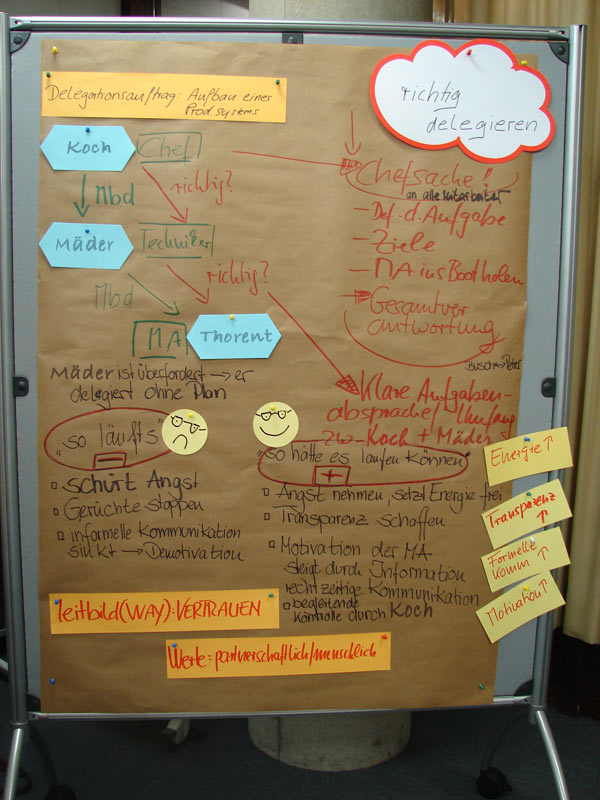 Delegationsauftrag: Aufbau eines
Prod.systems
richtig
delegieren
Koch
Chef
Mbd
richtig?
Mäder
Techniker
Mbd
richtig?
MA
Thorent
Chefsache!
an alle Mitarbeiter
- Def. d. Aufgabe
- Ziele
- MA ins Boot holen
Gesamtver
antwortung
Klare Aufgaben-
absprache/Umfang
zw. Koch + Mäder
Mäder ist überfordert → er
delegiert ohne Plan
"so läuft's"
-
schürt Angst
Gerüchte stoppen
informelle Kommunikation
sinkt → Demotivation
"so hätte es laufen können"
+
Angst nehmen, setzt Energie frei
Transparenz schaffen
Motivation der MA
steigt durch Information
rechtzeitige Kommunikation
begleitende
Kontrolle durch Koch
Energie ↑
Transparenz
↑
Formelle
Komm ↑
Motivation ↑
leitbild (WAY): VERTRAUEN
Werte = partnerschaftlich/menschlich